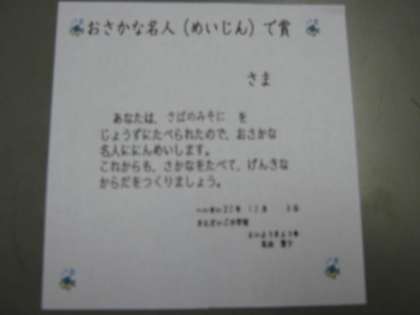 おさかな名人（めいじん）で賞
さま
あなたは、さばのみそに を
じょうずにたべられたので、おさかな
名人ににんめいします。
これからも、さかなをたべて、げんきな
からだをつくりましょう。